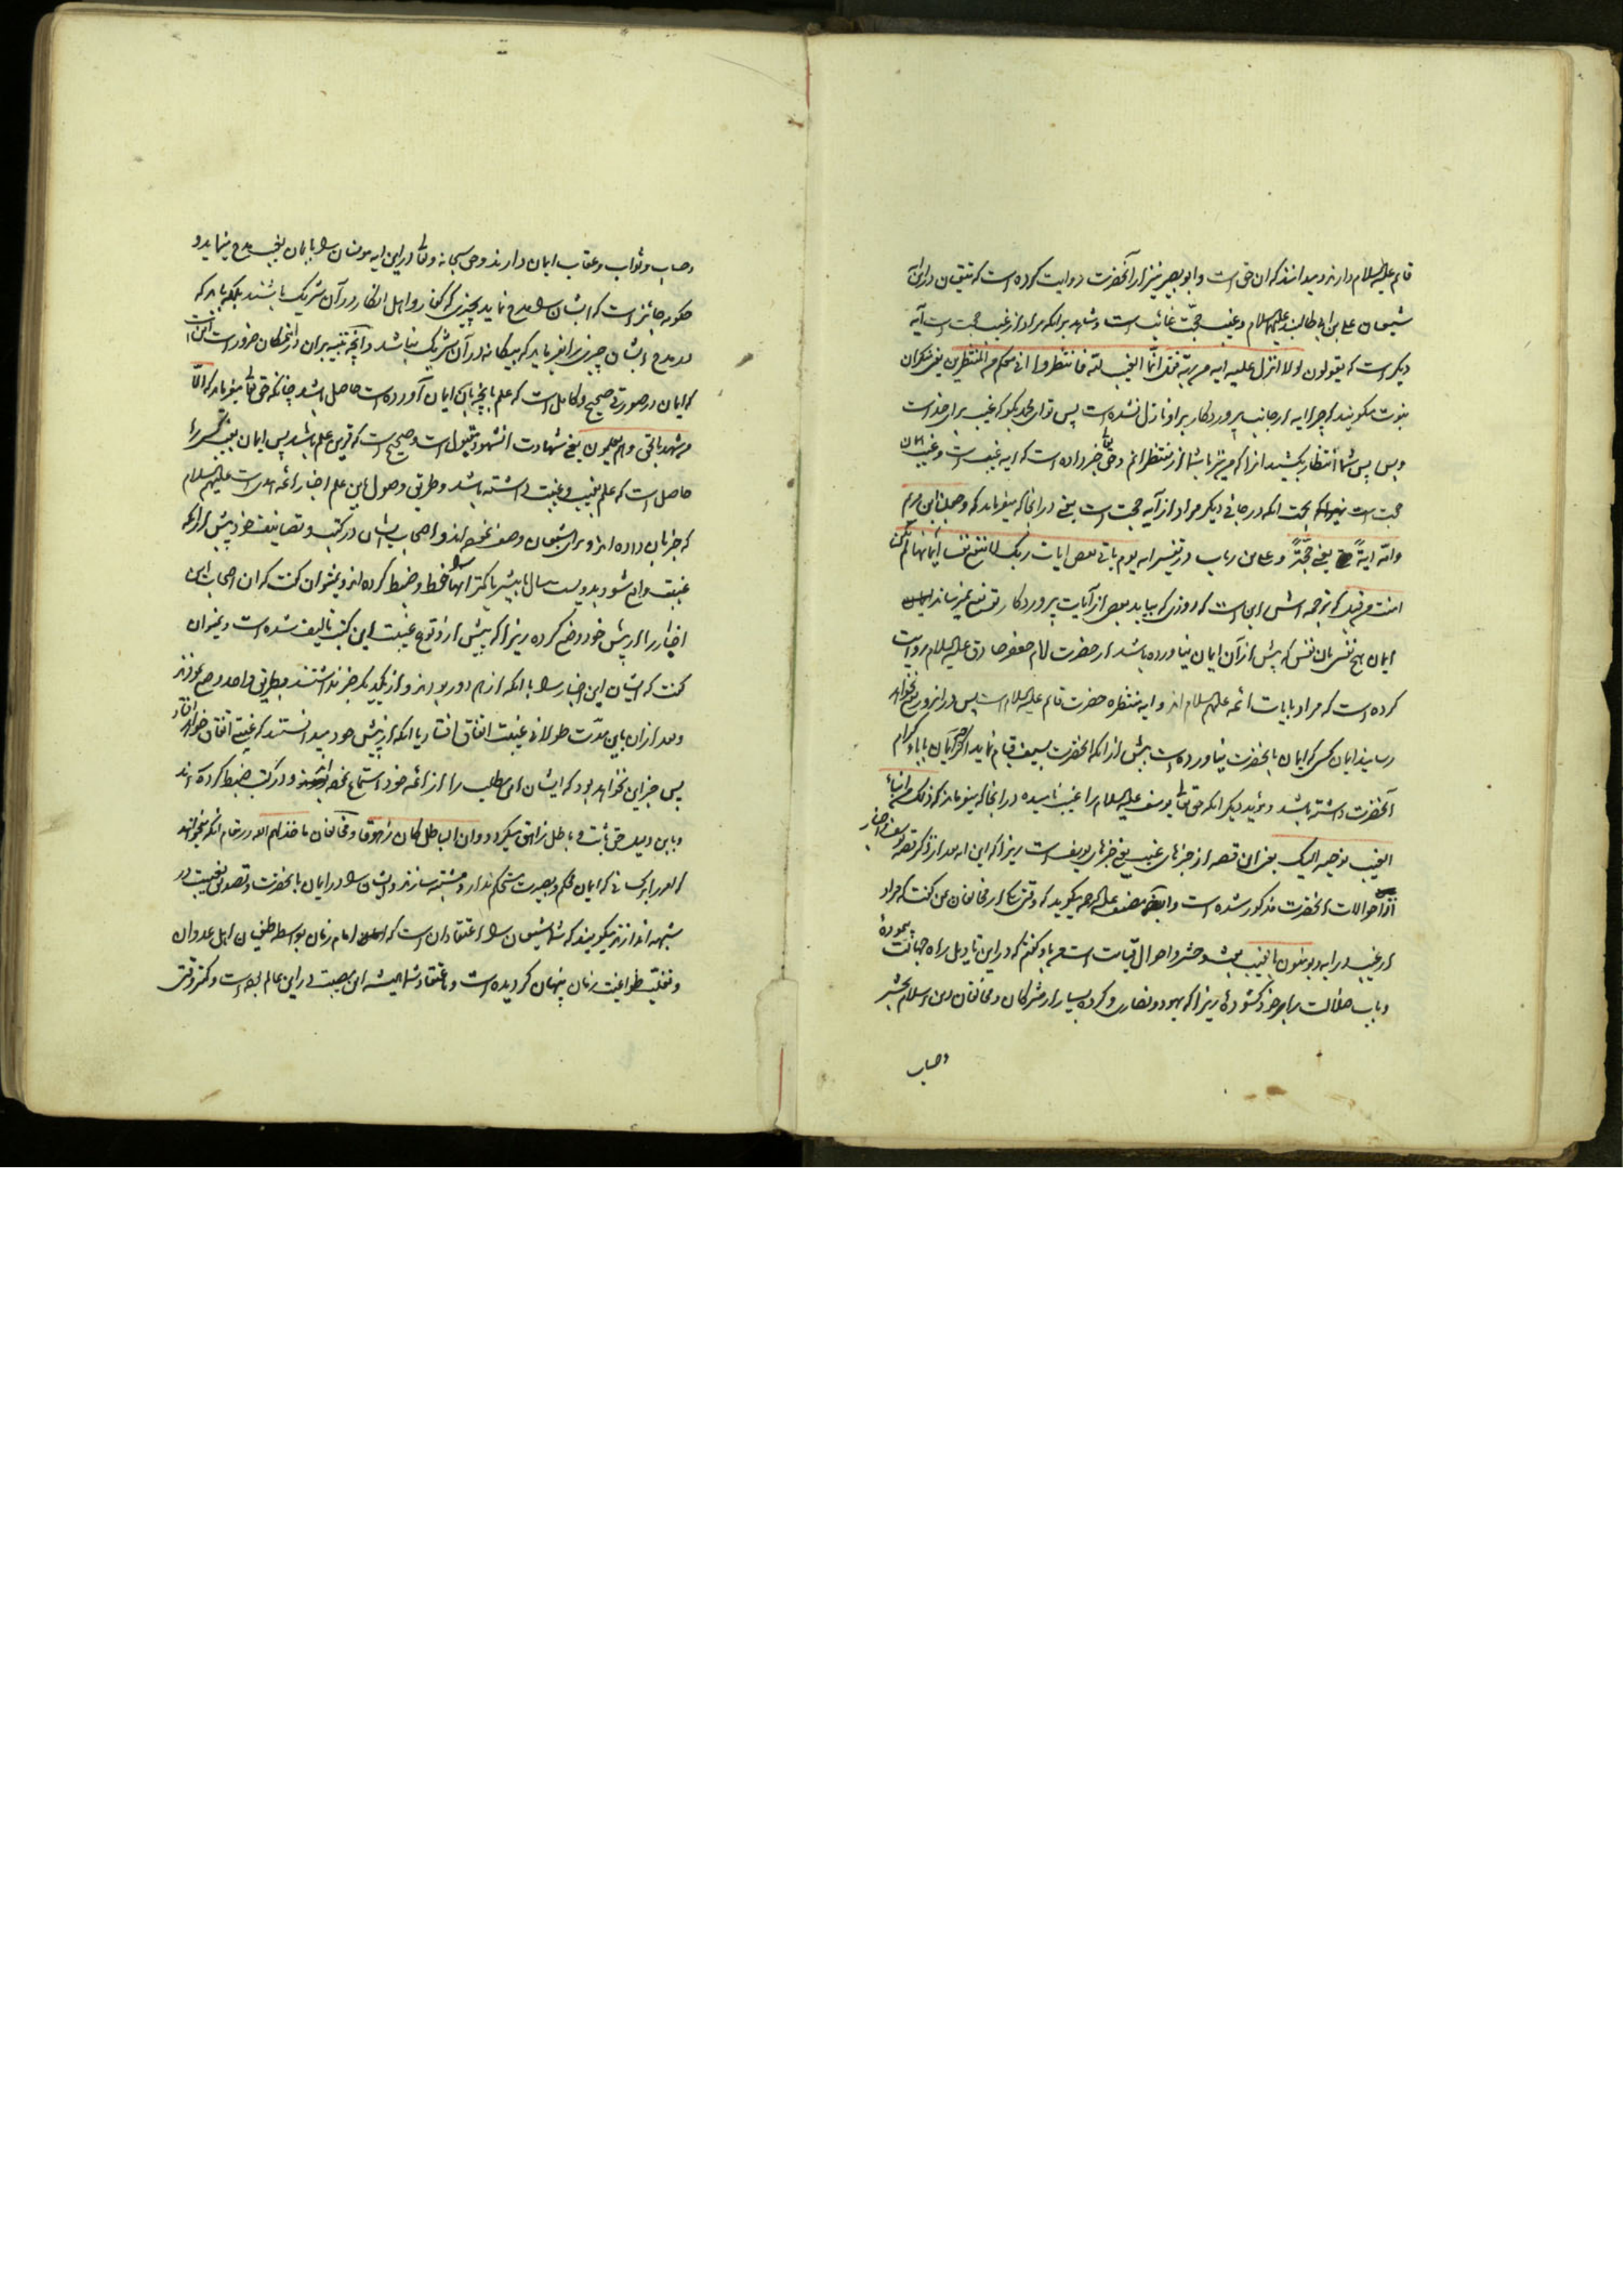 قائم علیه السلام دارند و میدانند که ان حق است و ابو بصیر نیز از آنحضرت روایت کرده است که متقین در این آیه
شیعیان علی بن ابی طالب علیه السلام و غیب حجت غائب است و شاهد بر انکه مراد از غیب حجت است آیه
دیگر است که یقولون لولا انزل علیه ایة من ربه فقل انما الغیب لله فانتظروا انی معکم من المنتظرین یعنی منکران
نبوت میگویند که چرا ایه از جانب پروردگار بر او نازل نشده است پس تو ای محمد بگو که غیب برای خداست
و بس پس شما انتظار بکشید انرا که من نیز با شما از منتظرانم و حق تعالی خبر داده است که ایه غیب است و غیب همان
حجت است بجهت انکه در جائی دیگر مراد از آیه حجت است یعنی در انجا که میفرماید که و جعلنا ابن مریم
و امه ایة یعنی حجة و علی بن ریاب در تفسیر ایه یوم یاتی بعض ایات ربک لا ینفع نفسا ایمانها لم تکن
امنت من قبل که ترجمه اش این است که روزی که بیاید بعض از آیات پروردگار تو نفع نمیرساند
ایمان هیچ نفسی بان نفس که پیش از آن ایمان نیاورده باشد از حضرت امام جعفر صادق علیه السلام روایت
کرده است که مراد بایات ائمه علیهم السلام اند و ایه منتظره حضرت قائم علیه السلام است پس در انروز نفع نخواهد
رسانید ایمان کسی که ایمان بانحضرت نیاورده است پیش از انکه انحضرت بسیف قیام نماید اگرچه ایمان باباء کرام
آنحضرت داشته باشد و مؤید دیگر انکه حق تعالی یوسف علیه السلام را غیب نامیده در انجا که میفرماید که ذلک من انباء
الغیب نوحیه الیک یعنی این قصه از خبرهای غیب یعنی خبرهای یوسف است زیرا که این ایه بعد از ذکر قصه یوسف و اخبار
از احوالات انحضرت مذکور شده است و مصنف علیه الرحمه میگوید که وقتی یکی از مخالفان بمن گفت که مراد
از غیب در ایه و یؤمنون بالغیب بعث و حشر و احوال قیامت است من باو گفتم که در این تاویل براه جهالت پیموده
و باب ضلالت بر روی خود گشوده زیرا که یهود و نصاری و گروه بسیار از مشرکان و مخالفان دین اسلام بحشر
و حساب
و حساب و ثواب و عقاب ایمان دارند و حق سبحانه و تعالی در این ایه مومنان را بایمان بغیب مدح مینماید و
چگونه جائز است که ایشان را مدح نماید بچیزی که کفار و اهل انکار در آن شریک باشند بلکه باید که
در مدح ایشان چیزی را بفرماید که بیگانه در آن شریک نباشد و آنچه تنبیه بران در این مکان ضرور است این است
که ایمان در صورتی صحیح و کامل است که علم بانچه بان ایمان آورده است حاصل باشد چنانکه حق تعالی میفرماید که الا
من شهد بالحق و هم یعلمون یعنی شهادت انشهود مقبول است و صحیح است که قرین علم باشد پس ایمان بغیب کسی را
حاصل است که علم بغیب و غیبت داشته باشد و طریق وصول باین علم اخبار ائمه هدی است علیهم السلام
که خبر بان داده اند و برای شیعیان وصف نموده اند و اصحاب ایشان در کتب و تصانیف خود پیش از انکه
غیبت واقع شود بدویست سال یا بیشتر یا کمتر انها را حفظ و ضبط کرده اند و نمیتوان گفت که ان اصحاب این
اخبار را از پیش خود وضع کرده زیرا که پیش از وقوع غیبت این کتب تالیف شده است و نمیتوان
گفت که ایشان این اخبار را با انکه از هم دور بودند و از یکدیگر خبر نداشتند بطریق واحد وضع نمودند
و بعد از ان باین مدت طولانی غیبت اتفاق افتاد یا انکه از پیش خود میدانستند که غیبتی اتفاق خواهد افتاد
پس جز این نخواهد بود که ایشان این مطلب را از ائمه خود استماع نموده اند و در کتب ضبط کرده اند
و باین دلیل حق ثابت و باطل زاهق میگردد و ان الباطل کان زهوقا و مخالفان ما خذلهم الله در مقام انکه میخواهند
که امر را بر کسانی که ایمان محکم و بصیرت مستحکم ندارد مشتبه سازند و ایشان را در ایمان بانحضرت و تصدیق بغیبت در
شبهه اندازند میگویند که شما شیعیان را اعتقاد ان است که امام زمان بواسطه طغیان اهل عدوان
و تغلب طواغیت زمان پنهان گردیده است و باعتقاد شما همیشه این مصیبت در این عالم بوده است و کمتر وقتی